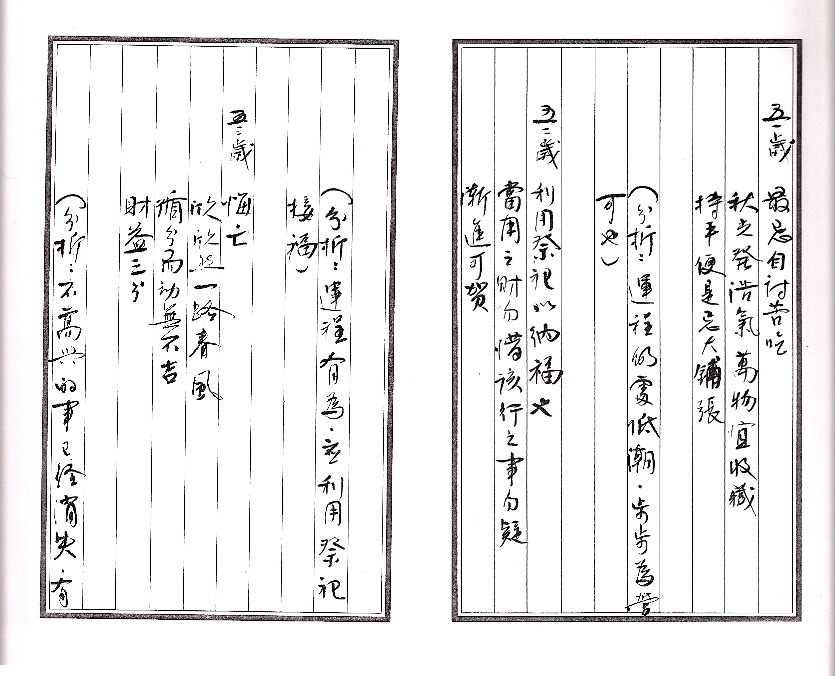 五一歲 最忌自討苦吃
秋之發浩氣萬物宜收藏
持平便是忌大鋪張
(分析:運程仍處低潮.步步為營
可也)
五二歲 利用祭祀以納福
當用之財勿惜該行之事勿疑
漸進可賀
(分析:運程有為.利用祭祀
接福)
五三歲 悔亡
欣欣然一路春風
循分而動無不吉
財益三分
(分析:不高興的事已經消失.有